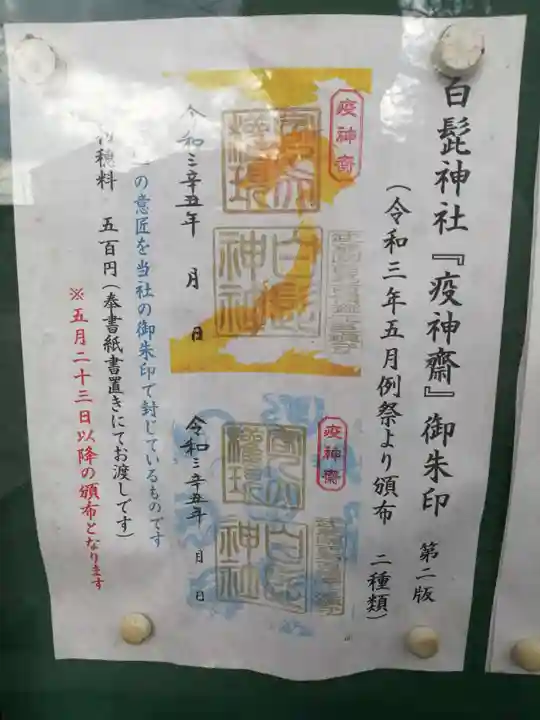 白髭神社『疫神齋』御朱印 第二版
(令和三年五月例祭より頒布 二種類)
疫神齋
白髭
神社
権現
令和三辛丑年 月 日
疫神齋
白髭
神社
権現
令和三辛丑年 月 日
の意匠を当社の御朱印で封じているものです
穂料 五百円(奉書紙書置きにてお渡しです)
※五月二十三日以降の頒布となります